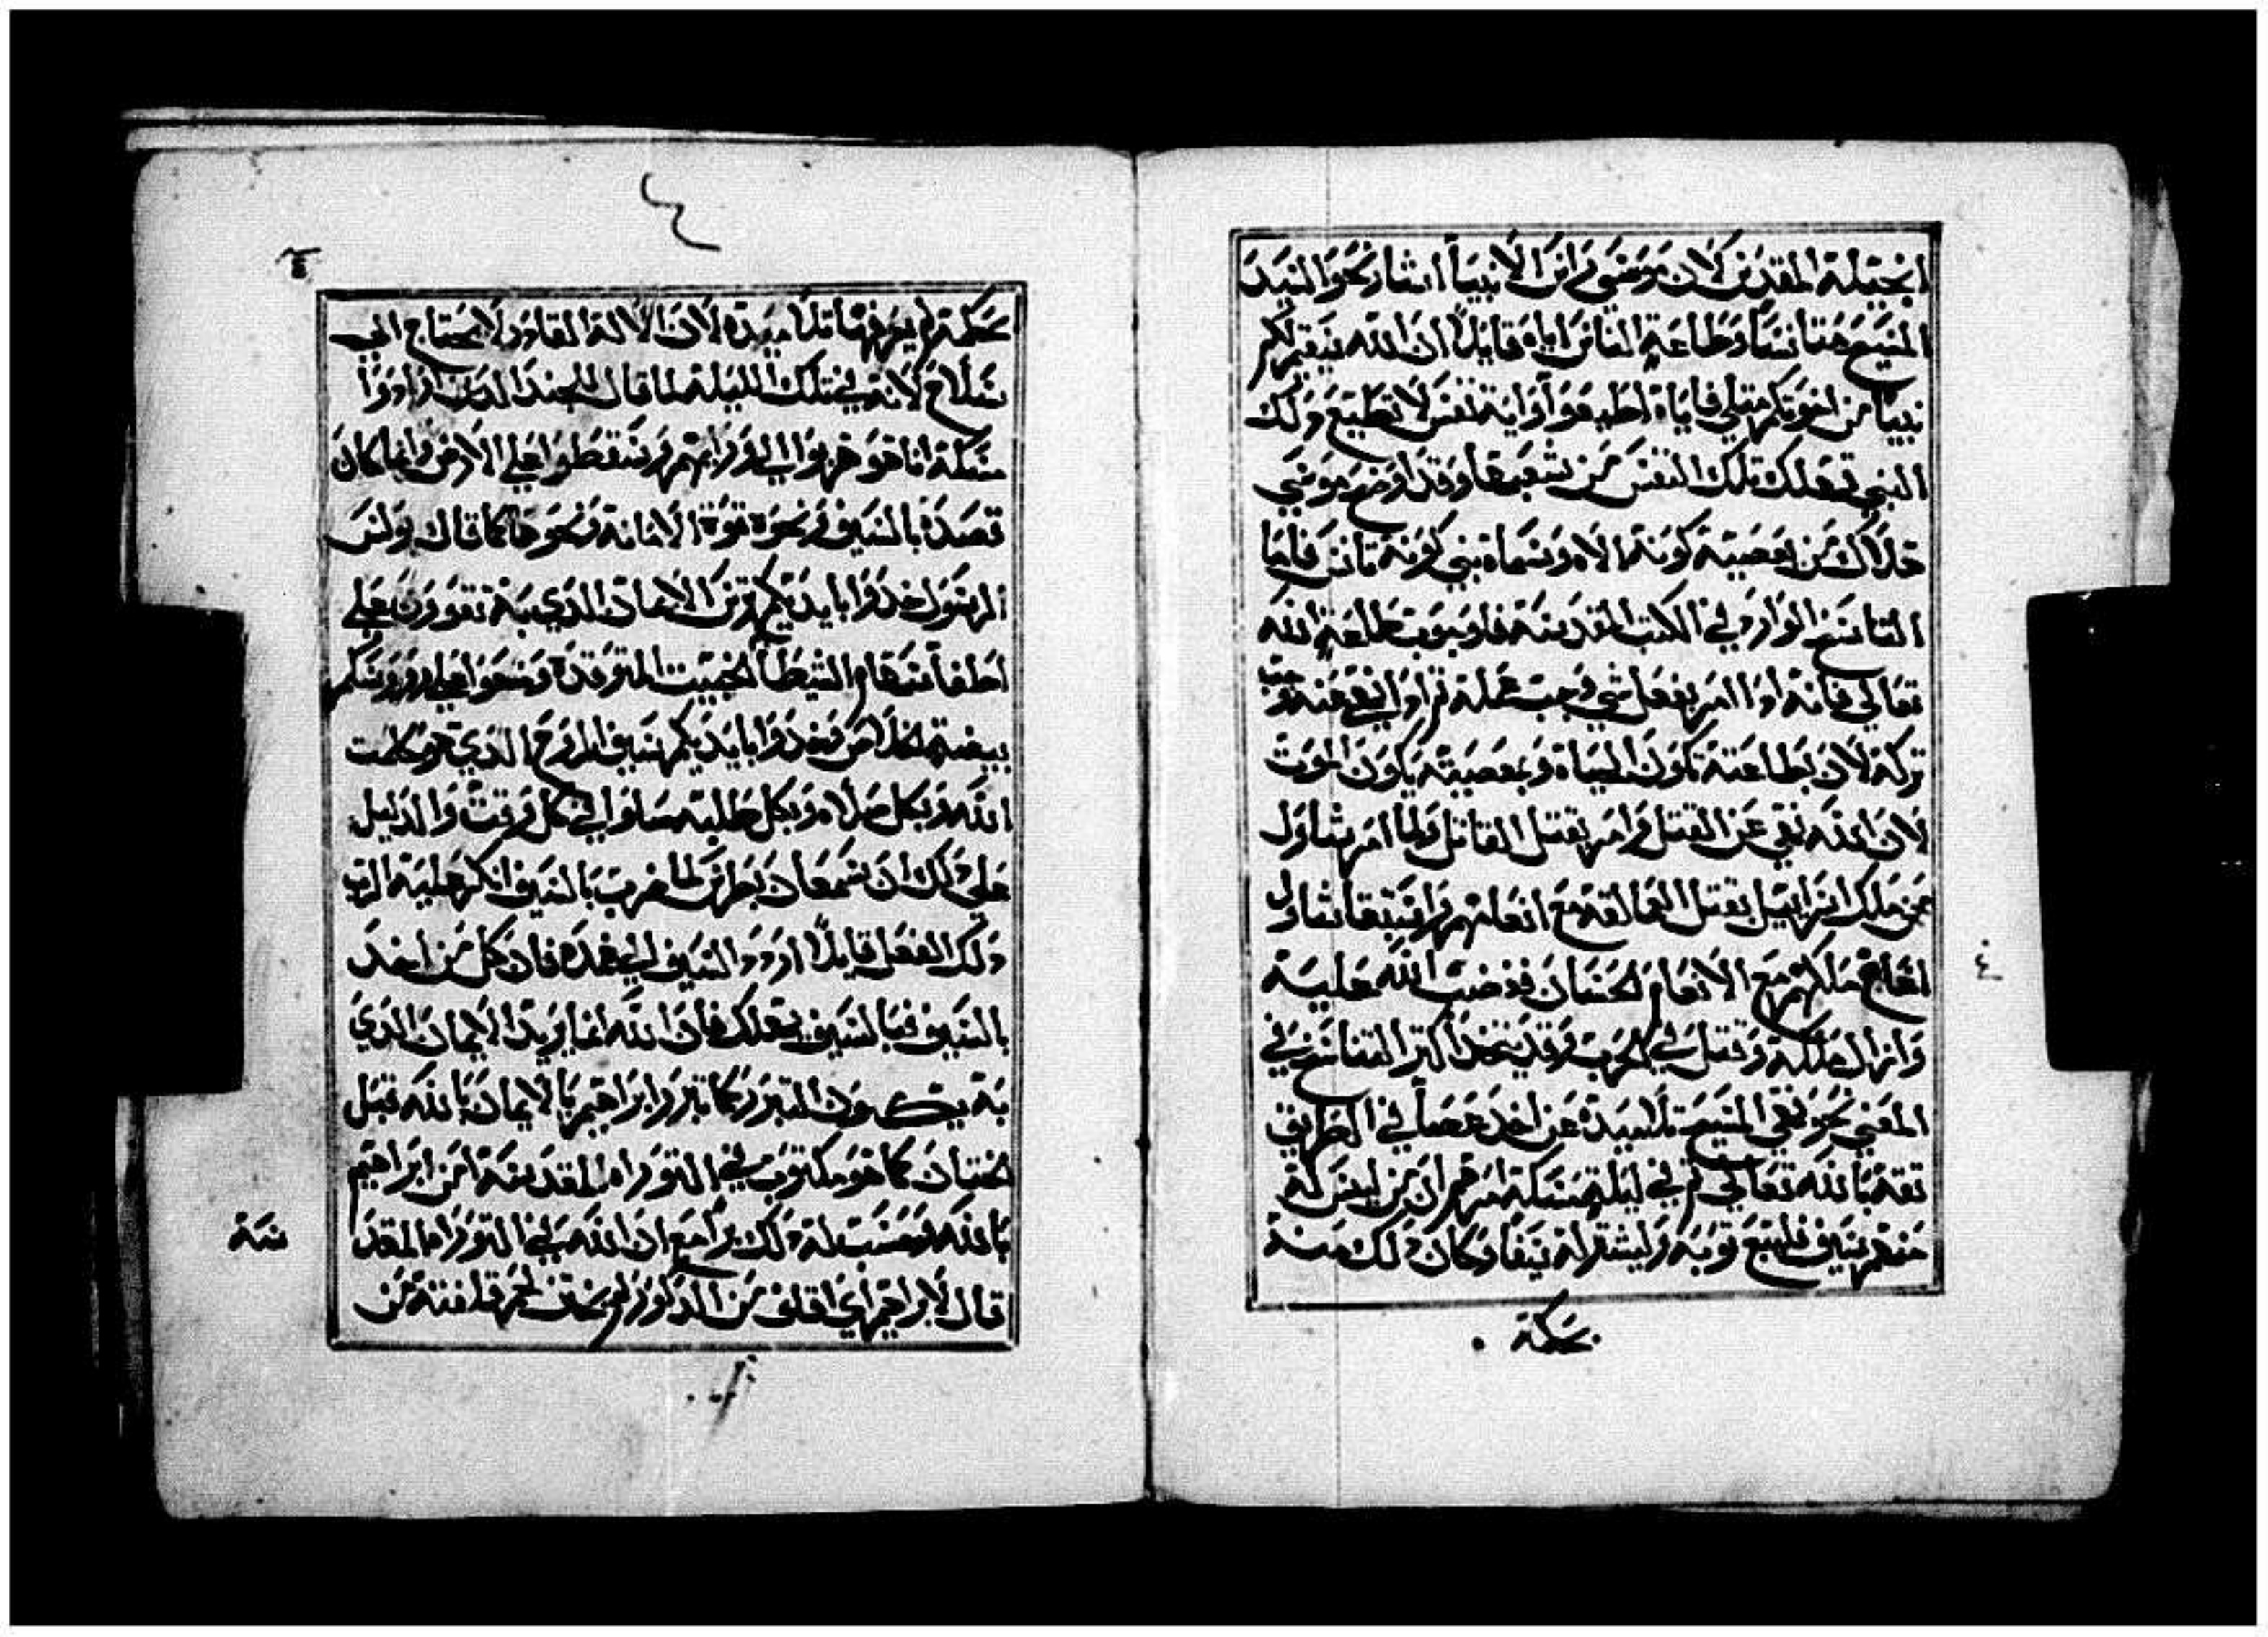 انجيله المقدس لان موسى راس الانبيا اشار نحو السيد
المسيح هنا نسا وطاعة الناس اياه قايلا ان الله سيقيم لكم
نبيا من اخوتكم متلي فاياه اطيعوا وايه نفس لا تطيع ذلك
النبي تهلك تلك النفس من شعبها وقد اوضح موسي
هلاك من يعصيه كونه الاه وسماه نبي كونه تانس فاما
الناسخ الوارد في الكتب المقدسه فلوجوب طاعة الله
تعالي فانه اذا امر بفعل شي وجب عمله واذا نهي عنه وجب
تركه لان بطاعته تكون الحياه وبمعصيته يكون الموت
لان الله نهي عن القتل وامر بقتل القاتل ولما امر شاول
عن ملك اسراييل بقتل العمالقه مع انعامهم واستبقا شاول
اغاغ ملكهم مع الانعام الحسان فغضب الله عليه
وازال ملكه وقتل في الحرب وقد يتحد اكتر التناسخ في
المعني نحو نهي المسيح تلاميده عن اخد عصا في الطريق
تقه بالله تعالي تم في ليلة مسكه امرهم ان من ليس له
منهم سيف فليبع توبه وليشتر له سيفا وكان ذلك منه
حكمة
٤
٤
حكمة لم يعرفها تلاميده لان الاله القادر لا يحتاج الي
سلاح لانه في تلك الليله لما قال للجند الدين ارادوا
مسكه انا هو خروا الي ورايهم وسقطوا علي الارض وانما كان
قصده بالسيف نحو قوة الامانه ونحوها كما قال بولس
الرسول خدوا بايديكم ترس الايمان الدي به تقوون علي
اطفا سهام الشيطان الخبيت المتوقده وضعوا علي رووسكم
بيضة الخلاص وخدوا بايديكم سيف الروح الدي هو كلمت
الله وبكل صلاه وبكل طلبه صلوا في كل وقت والدليل
علي ذلك ان شمعان بطرس لما ضرب بالسيف انكر عليه الرب
ذلك الفعل قايلا اردد السيف الي غمده فان كل من اخد
بالسيف فبالسيف يهلك فان الله انما يريد الايمان الدي
به يكون التبرر كما تبرر ابراهيم بالايمان بالله قبل
الختان كما هو مكتوب في التوراه المقدسه امن ابراهيم
بالله فحسب له ذلك برا مع ان الله في التوراه المقد
سه
قال لابراهيم اي اقلف من الدكور لم يختن لحم قلفته من